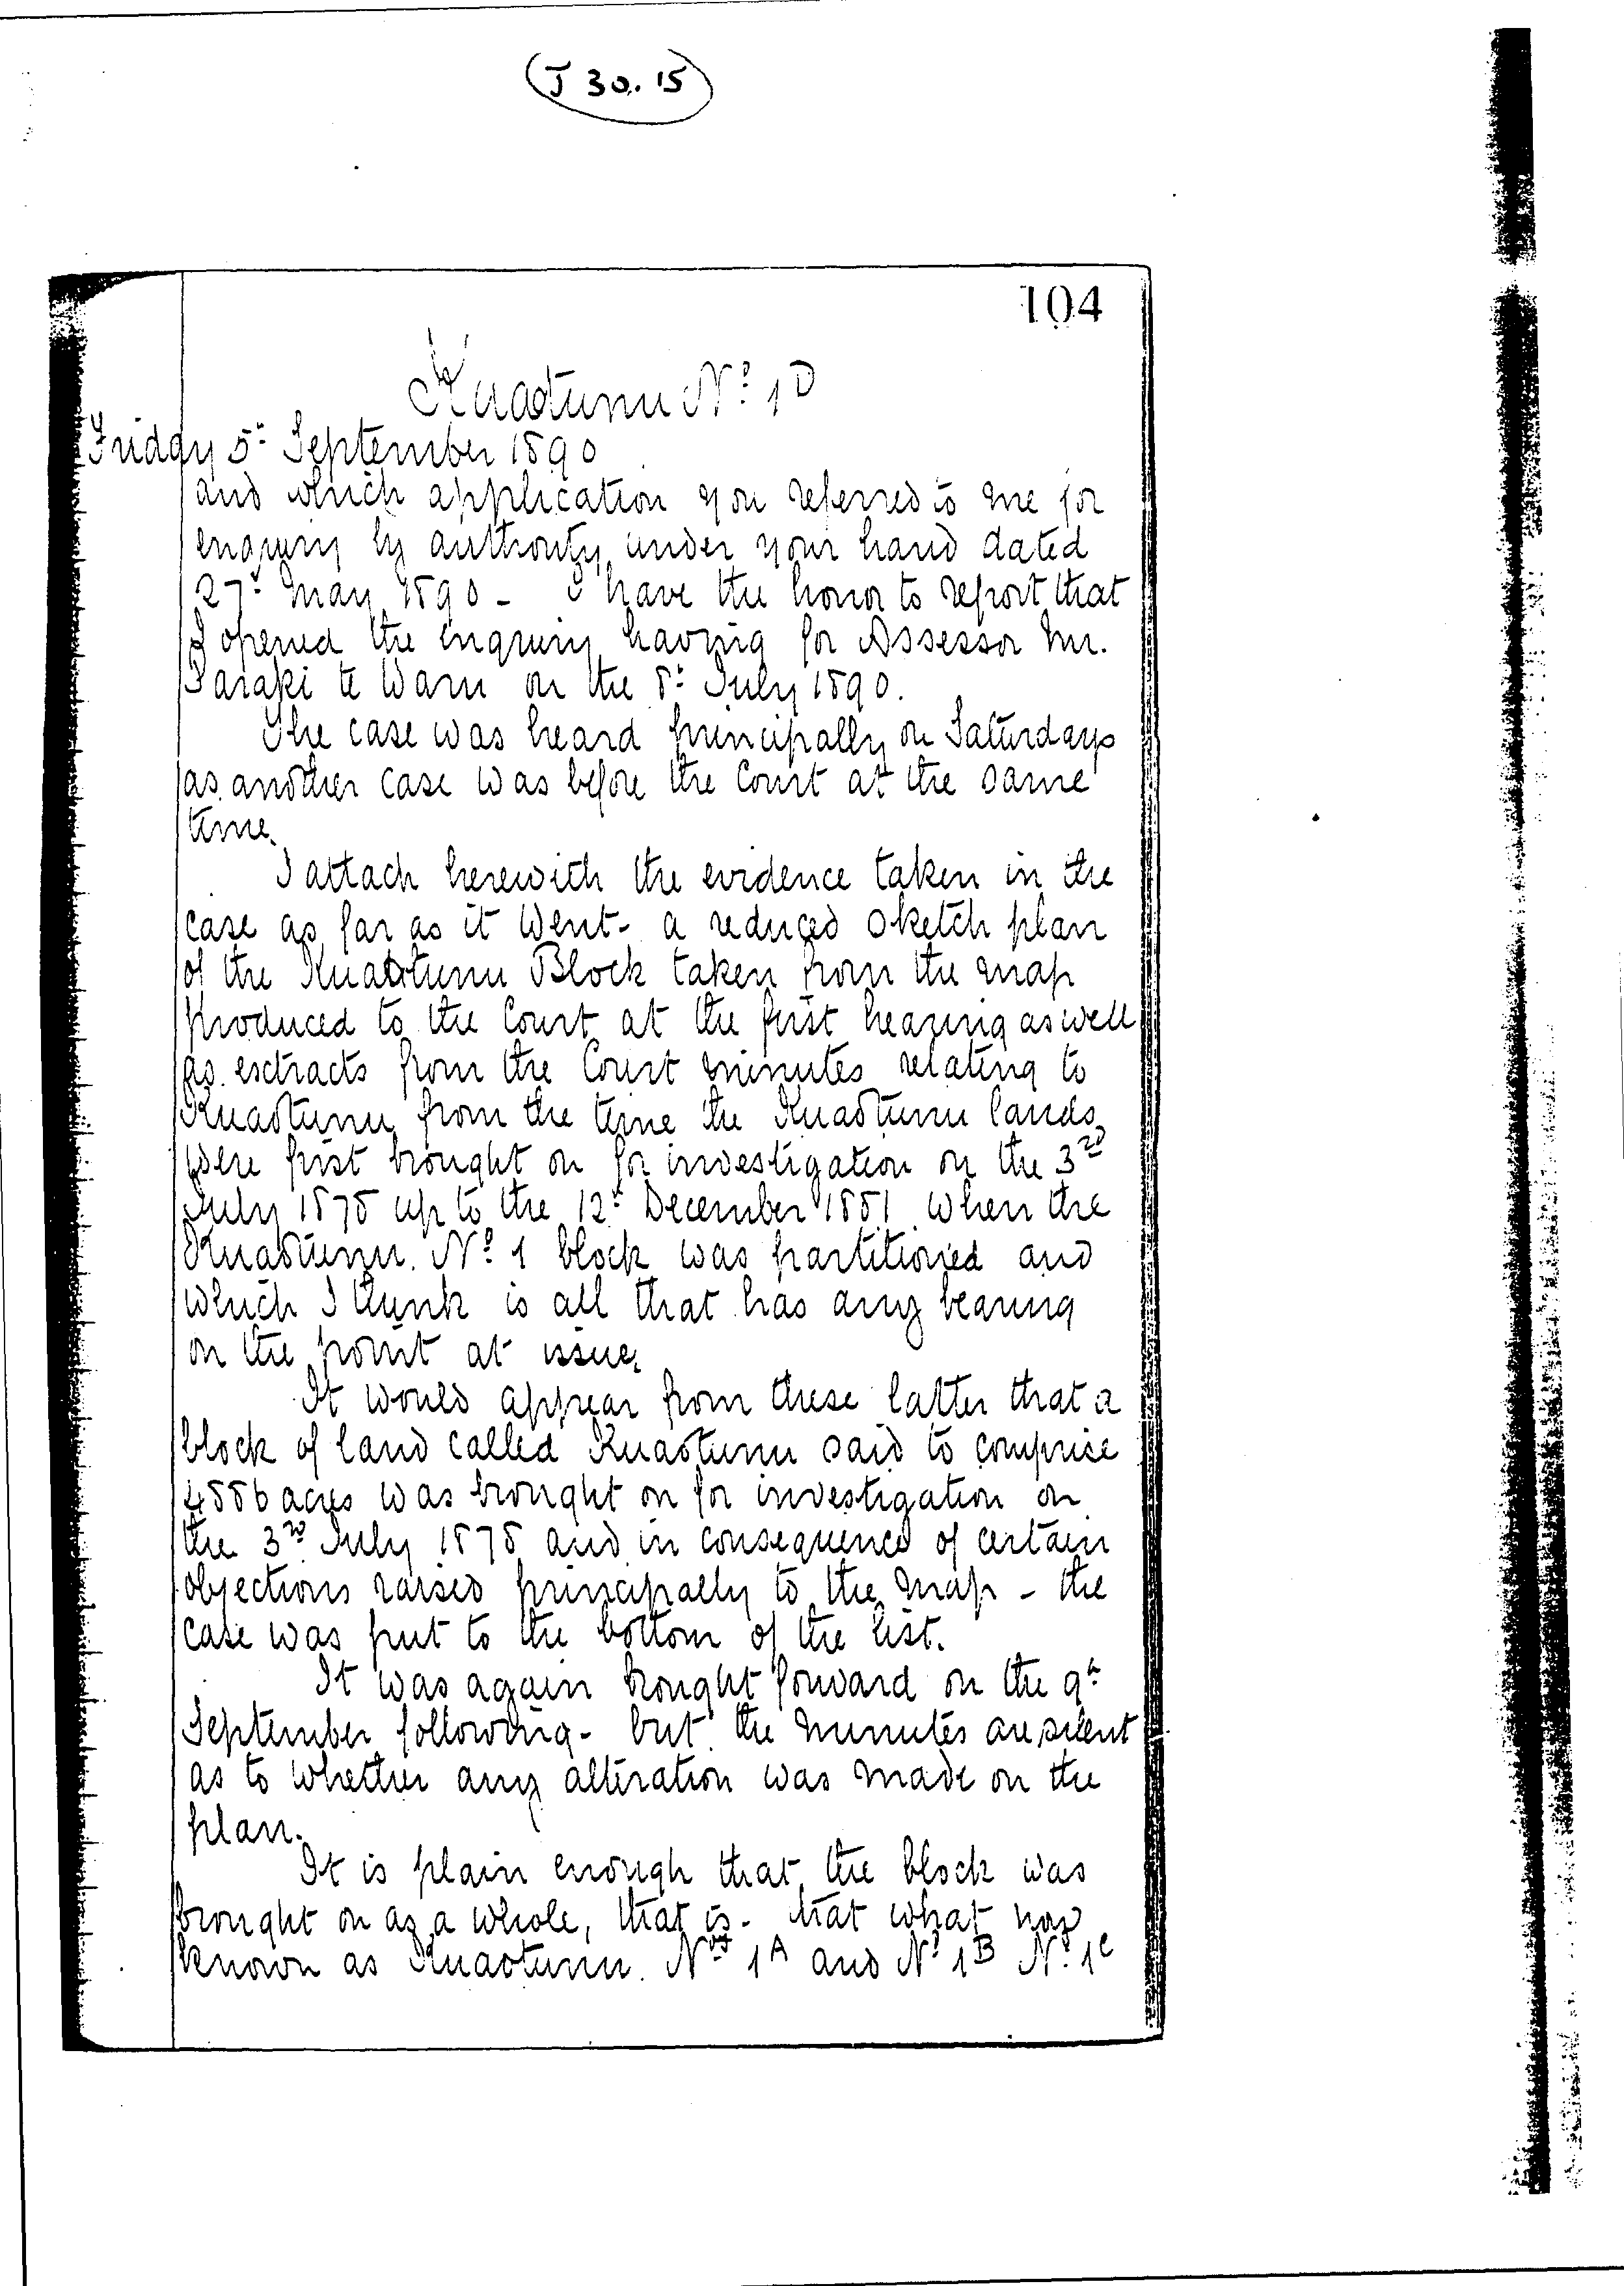 J 30.15
104
Kuaotunu No. 1D
Friday 5th September 1890
and which application you referred to me for
enquiry by authority under your hand dated
27th May 1890 - I have the honor to report that
I opened the inquiry having for Assessor Mr.
Paraki te Waru on the 8th July 1890.
The case was heard principally on Saturdays
as another case was before the Court at the same
time.
I attach herewith the evidence taken in the
case as far as it went - a reduced sketch plan
of the Kuaotunu Block taken from the map
produced to the Court at the first hearing as well
as extracts from the Court minutes relating to
Kuaotunu from the time the Kuaotunu lands
were first brought on for investigation on the 3rd
July 1878 up to the 12th December 1881 when the
Kuaotunu. No. 1 block was partitioned and
which I think is all that has any bearing
on the point at issue.
It would appear from these latter that a
block of land called Kuaotunu said to comprise
4886 acres was brought on for investigation on
the 3rd July 1878 and in consequence of certain
objections raised principally to the map - the
case was put to the bottom of the list.
It was again brought forward on the 9th
September following - but the minutes are silent
as to whether any alteration was made on the
plan.
It is plain enough that the block was
brought on as a whole, that is - that what now
known as Kuaotunu. Nos 1A and No 1B No. 1C